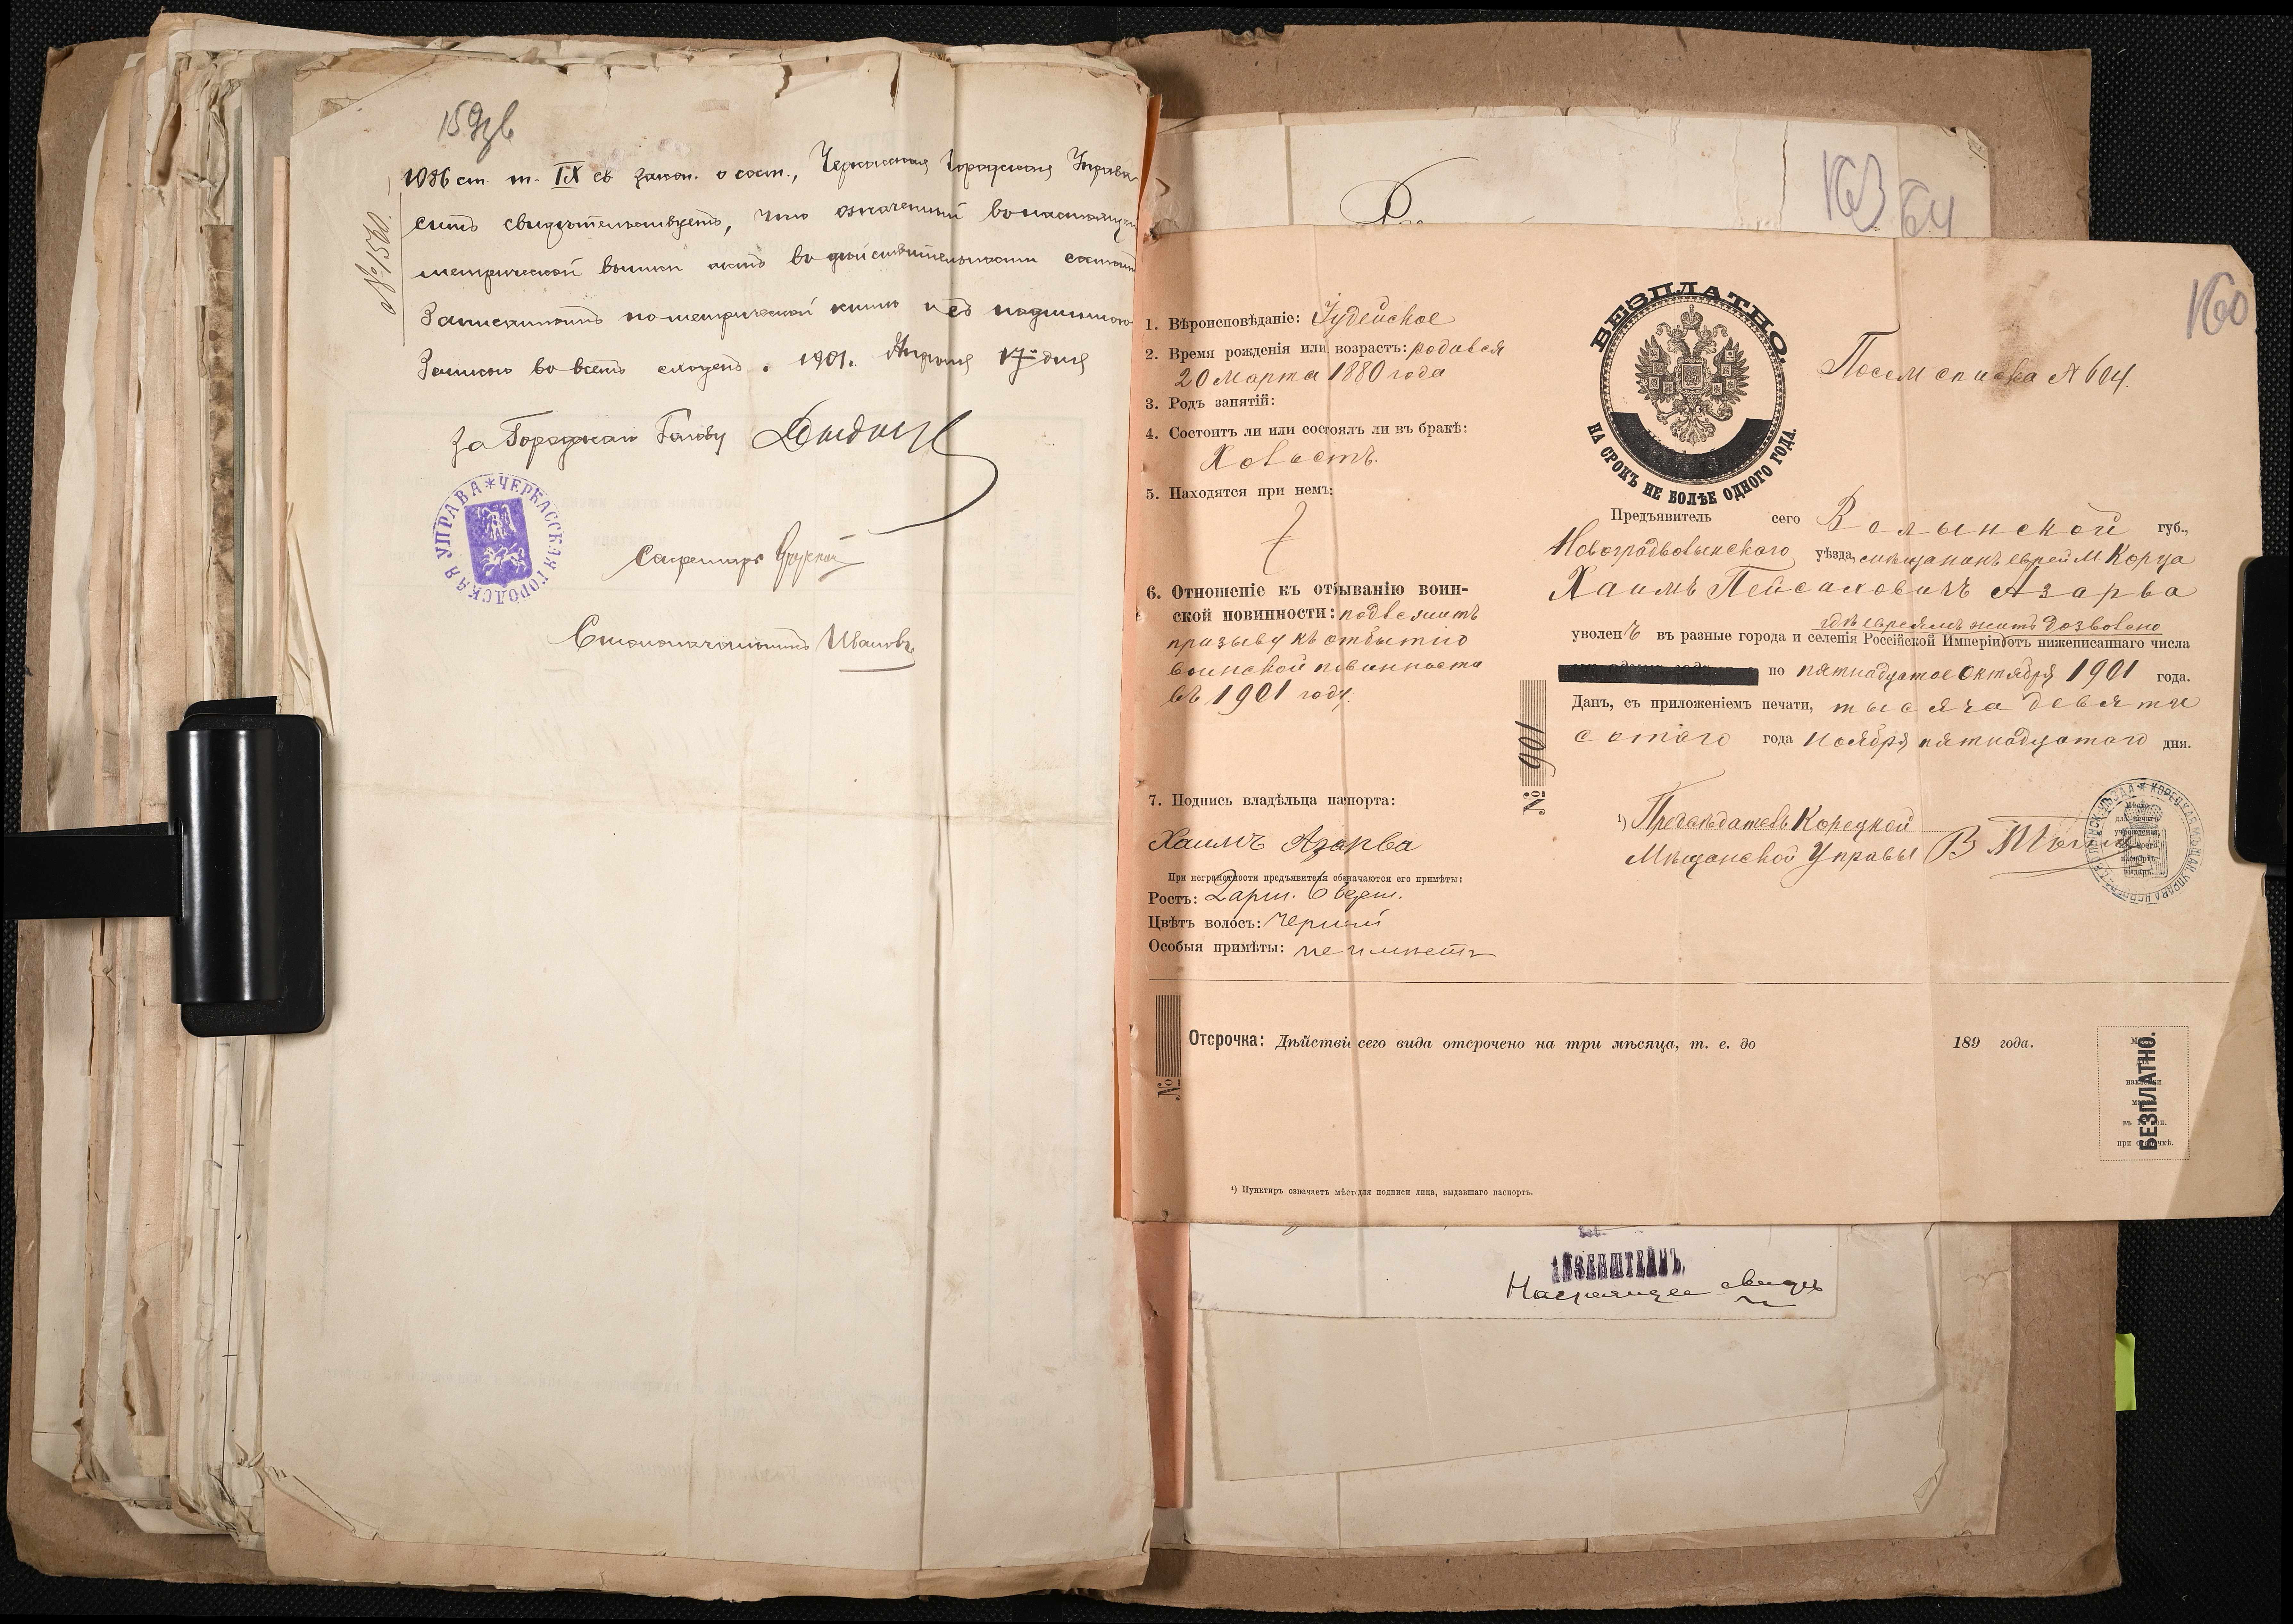 1086 ст. т. IX св. закон. о сост., Черкасская Городская Управа
симъ свидѣтельствуетъ, что означенный въ настоящей
метрической выписи актъ въ дѣйствительности
записаннымъ по метрической книгѣ и съ подлинною
записью во всемъ сходенъ. 1901. Апрѣля 17 дня
№ 1560.
За Городскаго Голову
ЧЕРКАССКАЯ ГОРОДСКАЯ УПРАВА
Секретарь
Столоначальникъ Ивановъ
163
64
160
1. Вѣроисповѣданіе: Іудейское
2. Время рожденія или возрастъ: родился
20 Марта 1880 года
3. Родъ занятій:
4. Состоитъ ли или состоялъ ли въ бракѣ:
Холостъ.
5. Находятся при немъ:
6. Отношеніе къ отбыванію воин-
ской повинности: подлежитъ
призыву къ отбытію
воинской повинности
въ 1901 году.
7. Подпись владѣльца паспорта:
Хаимъ Азарва
При неграмотности предъявителя обозначаются его примѣты:
Ростъ: 2 арш. 6 верш.
Цвѣтъ волосъ: черный
Особыя примѣты: не имѣетъ
БЕЗПЛАТНО.
НА СРОКЪ НЕ БОЛѢЕ ОДНОГО ГОДА.
Посем списка № 604.
Предъявитель сего Волынской губ.,
Новоградволынскаго уѣзда, мѣщанинъ еврей М Корца
Хаимъ Пейсаховичъ Азарва
гдѣ евреямъ жить дозволено
уволенъ въ разные города и селенія Россійской Имперіи отъ нижеписаннаго числа
по пятнадцатое Октября 1901 года.
Данъ, съ приложеніемъ печати, тысяча девяти
сотаго года Ноября пятнадцатаго дня.
№ 901
¹) Предсѣдатель Корецкой
Мѣщанской Управы
Отсрочка: Дѣйствіе сего вида отсрочено на три мѣсяца, т. е. до 189 года.
№
БЕЗПЛАТНО.
¹) Пунктиръ означаетъ мѣсто для подписи лица, выдавшаго паспортъ.